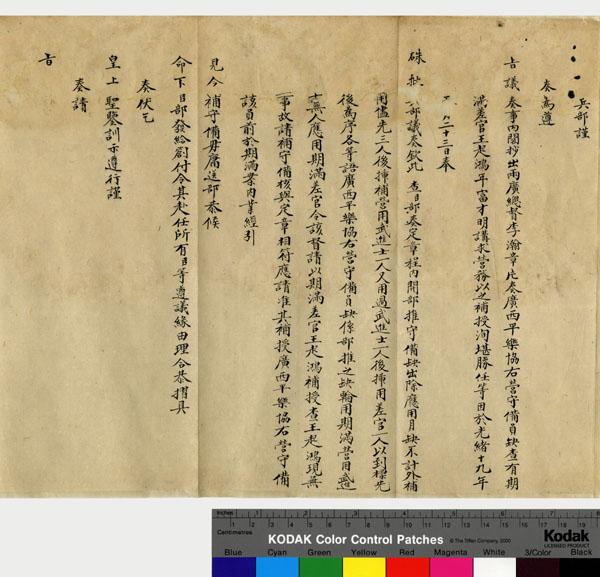 兵部謹
奏為遵
旨議奏事內閣抄出兩廣總督李瀚章片奏廣西平樂協右營守備員缺查有期
滿差官王起鴻年富才明講求營務以之補授洵堪勝任等因於光緒十九年
八月二十三日奉
硃批兵部議奏欽此 查臣部奏定章程內開部推守備缺出除應用月缺不計外補
用儘先三人後揷補營用武進士一人又用過武進士二人後揷用差官一人以到標先
後為序各等語廣西平樂協右營守備員缺係部推之缺輪用期滿營用武進
士無人應用期滿差官今該督請以期滿差官王起鴻補授查王起鴻現無
事故請補守備核與定章相符應請准其補授廣西平樂協右營守備
該員前於期滿案內曾經引
見今補守備毋庸送部恭候
命下臣部發給劄付令其赴任所有臣等遵議緣由理合恭摺具
奏伏乞
皇上聖鑒訓示遵行謹
奏請
旨
Inches
Centimetres
KODAK Color Control Patches
© The Tiffen Company, 2000
Kodak
LICENSED PRODUCT
Blue
Cyan
Green
Yellow
Red
Magenta
White
3/Color
Black